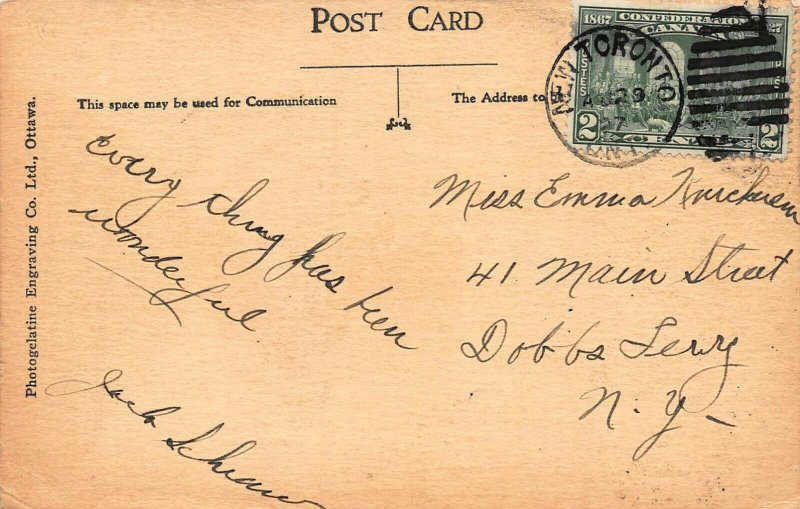 POST CARD
This space may be used for Communication
The Address to
Photogelatine Engraving Co. Ltd., Ottawa.
1867 CONFEDERATION
CANADA
POSTES
2 CENTS 2
NEW TORONTO
AU 29
27
Every thing has been
wonderful
Jack
Miss Emma
41 Main Street
Dobbs Ferry
N.Y.